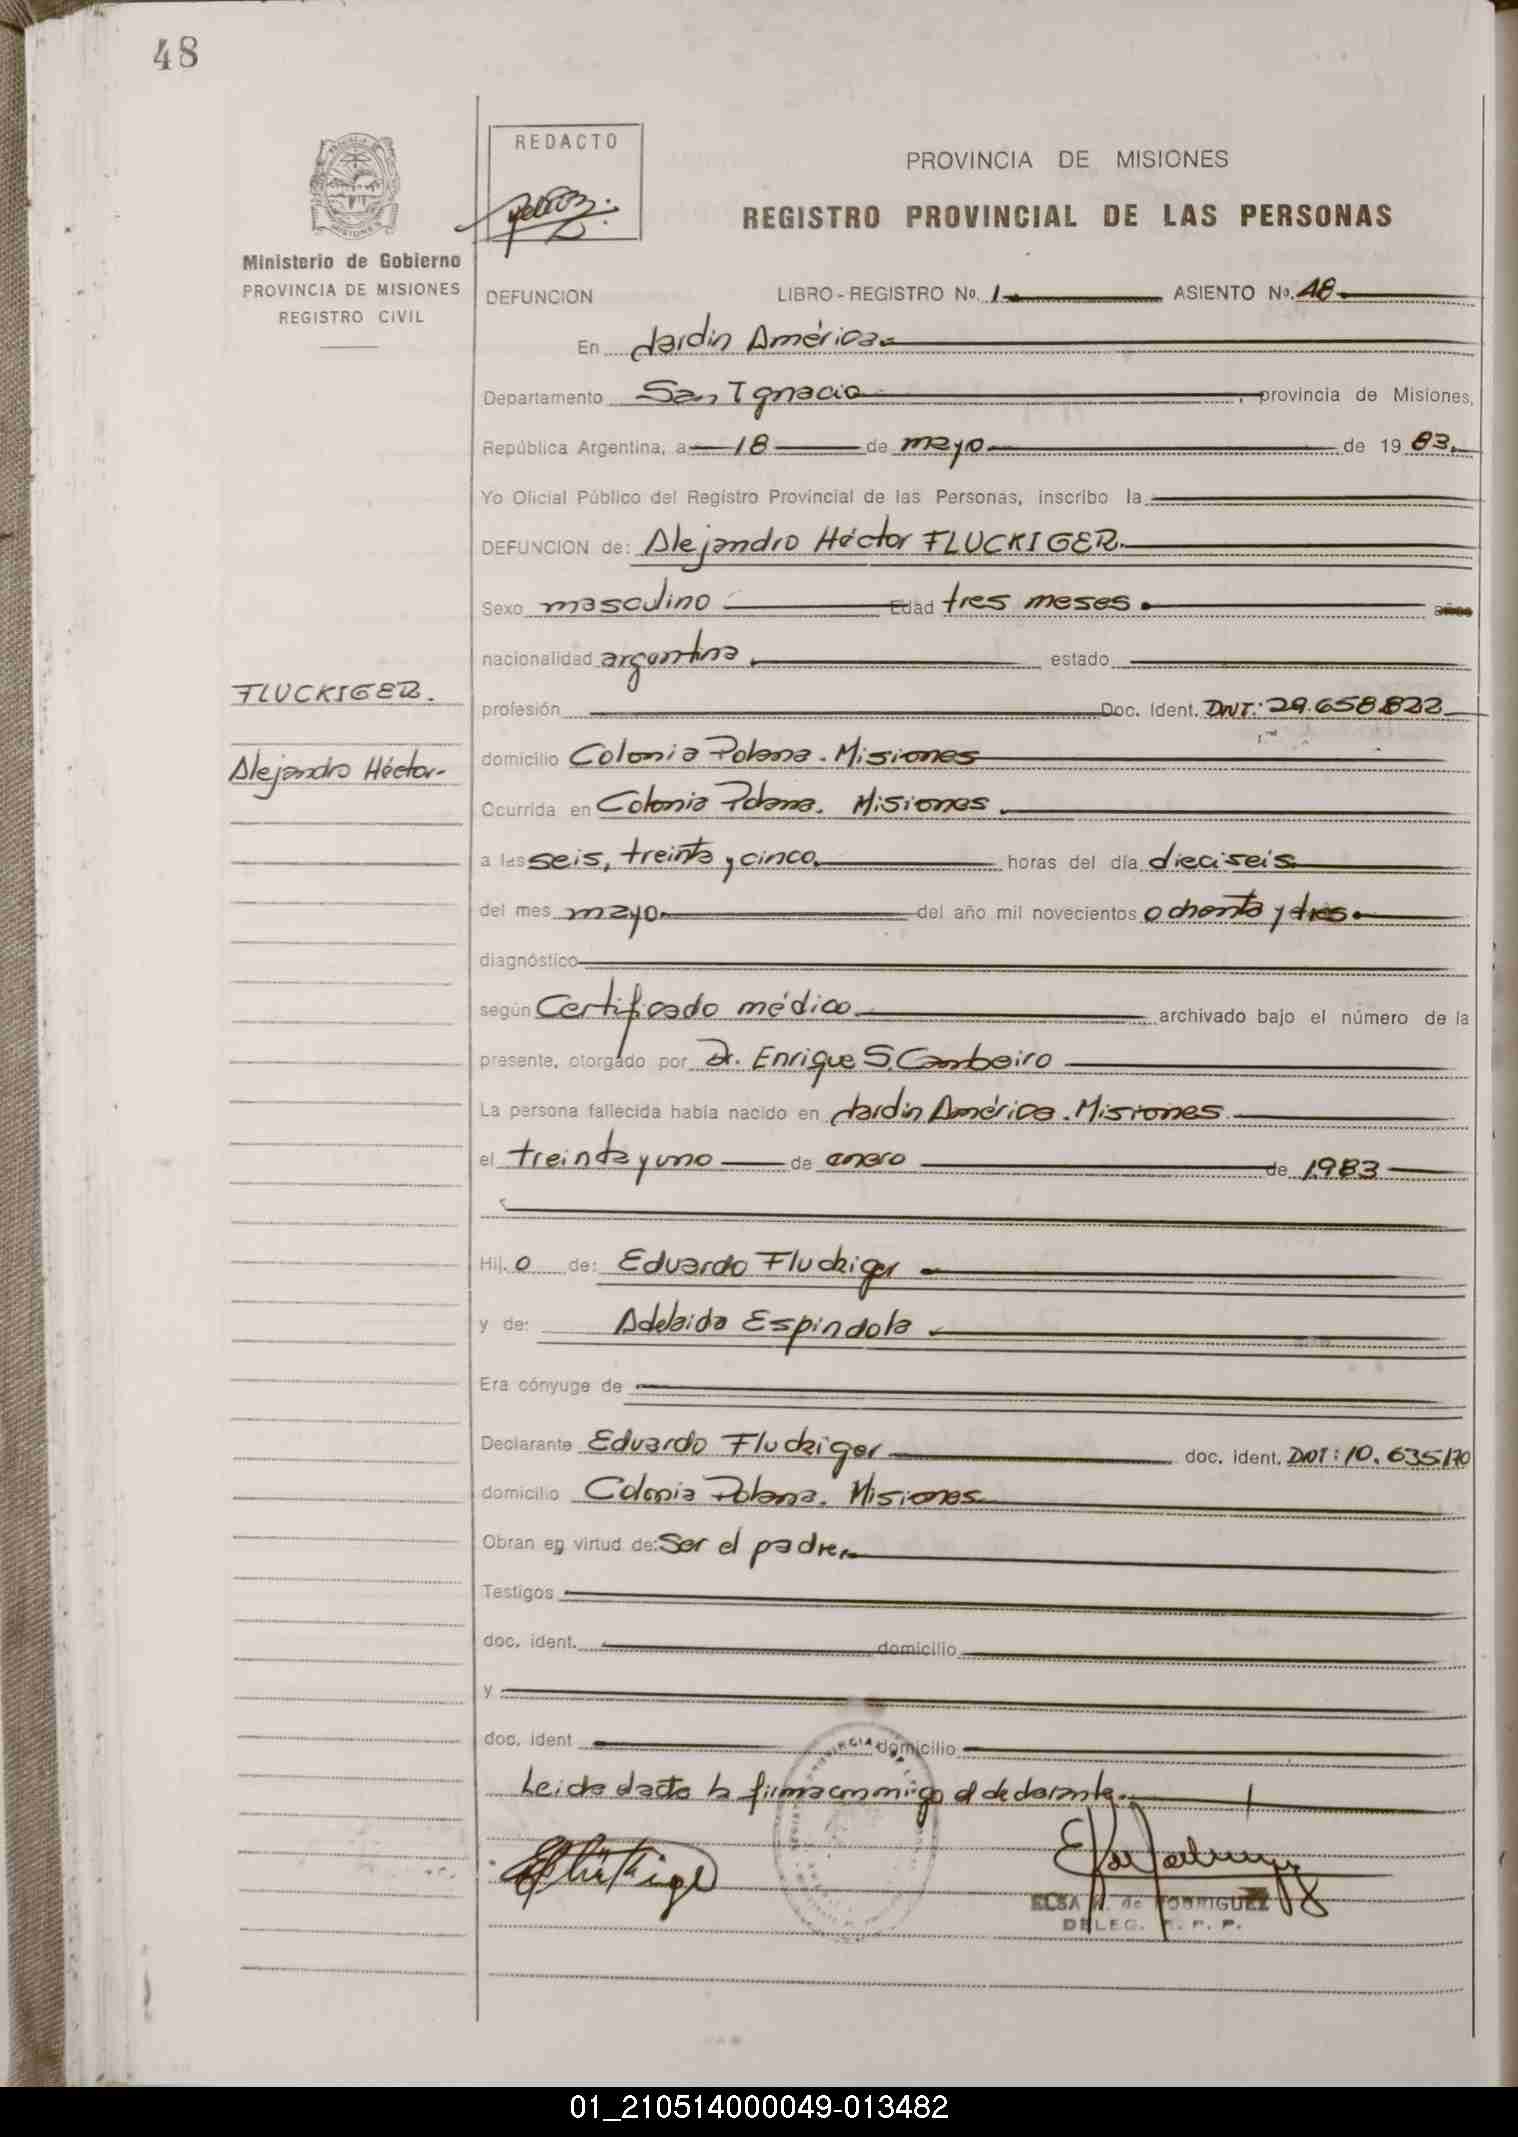 48
REDACTO
PROVINCIA DE MISIONES
REGISTRO PROVINCIAL DE LAS PERSONAS
Ministerio de Gobierno
PROVINCIA DE MISIONES
REGISTRO CIVIL
DEFUNCION LIBRO - REGISTRO Nº. 1 ASIENTO Nº. 48
En Jardín América
Departamento San Ignacio, provincia de Misiones,
República Argentina, a 18 de mayo de 1983.
Yo Oficial Público del Registro Provincial de las Personas, inscribo la
DEFUNCION de: Alejandro Héctor FLUCKIGER.
Sexo masculino Edad tres meses años
nacionalidad argentina estado
FLUCKIGER.
profesión Doc. Ident. DNI: 29.658.822
Alejandro Héctor
domicilio Colonia Polana. Misiones
Ocurrida en Colonia Polana. Misiones
a las seis, treinta y cinco horas del día dieciseis
del mes mayo del año mil novecientos ochenta y tres
diagnóstico
según Certificado médico archivado bajo el número de la
presente, otorgado por Dr. Enrique S.
La persona fallecida había nacido en Jardín América. Misiones
el treinta y uno de enero de 1983
Hij. o de: Eduardo Fluckiger
y de: Adelaida Espindola
Era cónyuge de
Declarante Eduardo Fluckiger doc. ident. DNI: 10.635.170
domicilio Colonia Polana. Misiones
Obran en virtud de: Ser el padre,
Testigos
doc. ident. domicilio
y
doc. ident domicilio
Leida el acta la firma conmigo el declarante.
ELSA de RODRIGUEZ
DELEG. R. P. P.
01_210514000049-013482